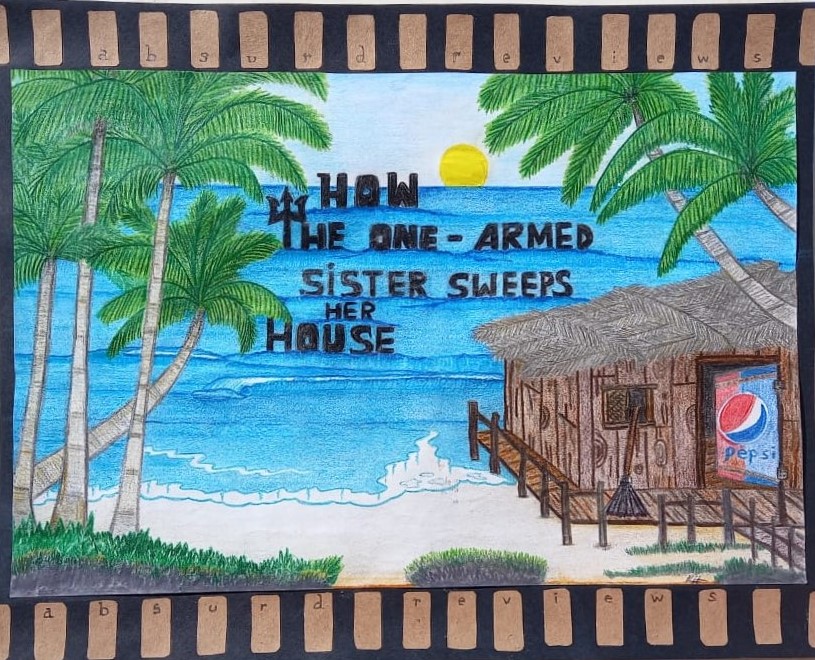 absurd reviews
HOW
THE ONE-ARMED
SiSTER SWEEPS
HER
HOUSE
pepsi
absurd reviews